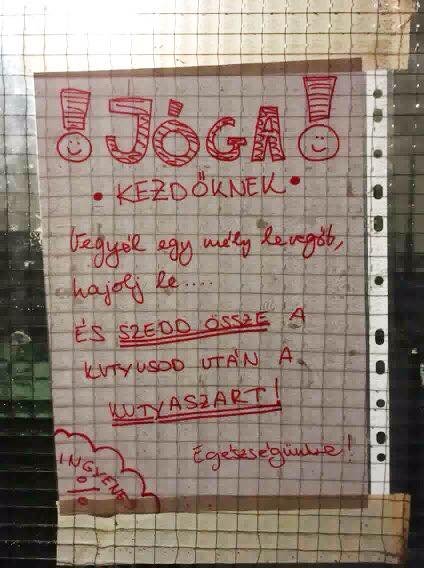 ! JÓGA !
• KEZDŐKNEK •
Vegyél egy mély levegőt,
hajolj le....
ÉS SZEDD ÖSSZE A
KUTYUSOD UTÁN A
KUTYASZART!
Egészségünkre!
INGYENES